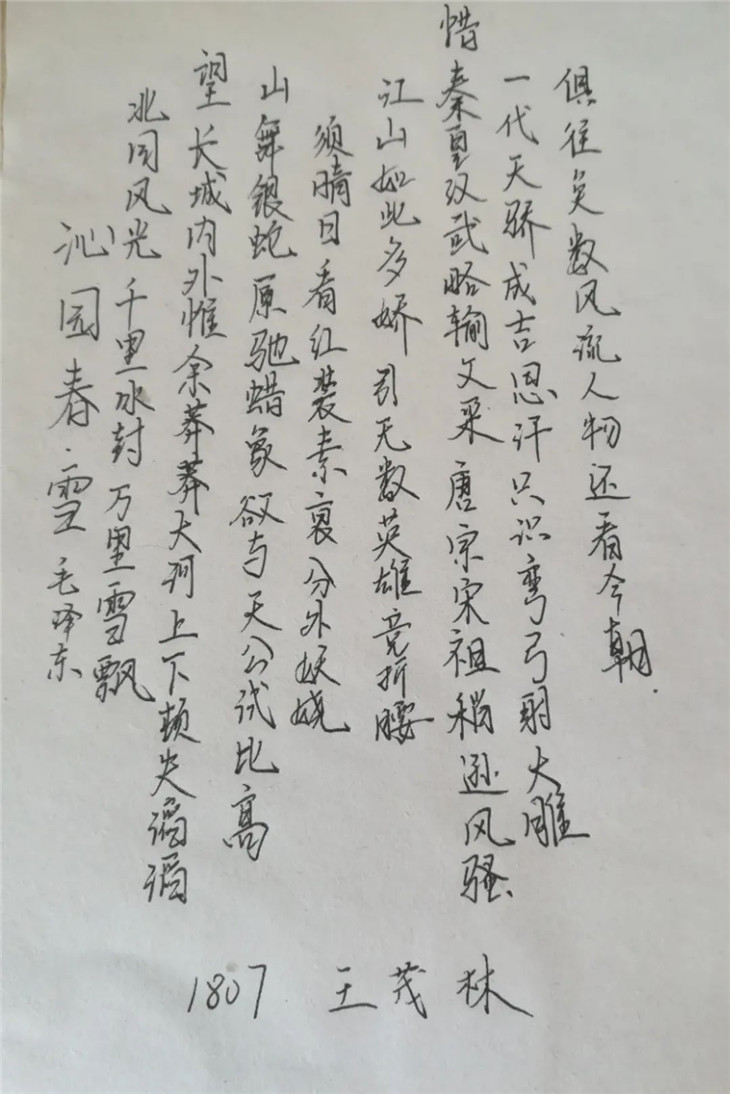 沁园春·雪 毛泽东
北国风光 千里冰封 万里雪飘
望长城内外惟余莽莽大河上下顿失滔滔
山舞银蛇原驰蜡象欲与天公试比高
须晴日看红装素裹分外妖娆
江山如此多娇 引无数英雄竞折腰
惜秦皇汉武略输文采唐宗宋祖稍逊风骚
一代天骄成吉思汗只识弯弓射大雕
俱往矣数风流人物还看今朝.
1807 王茂林